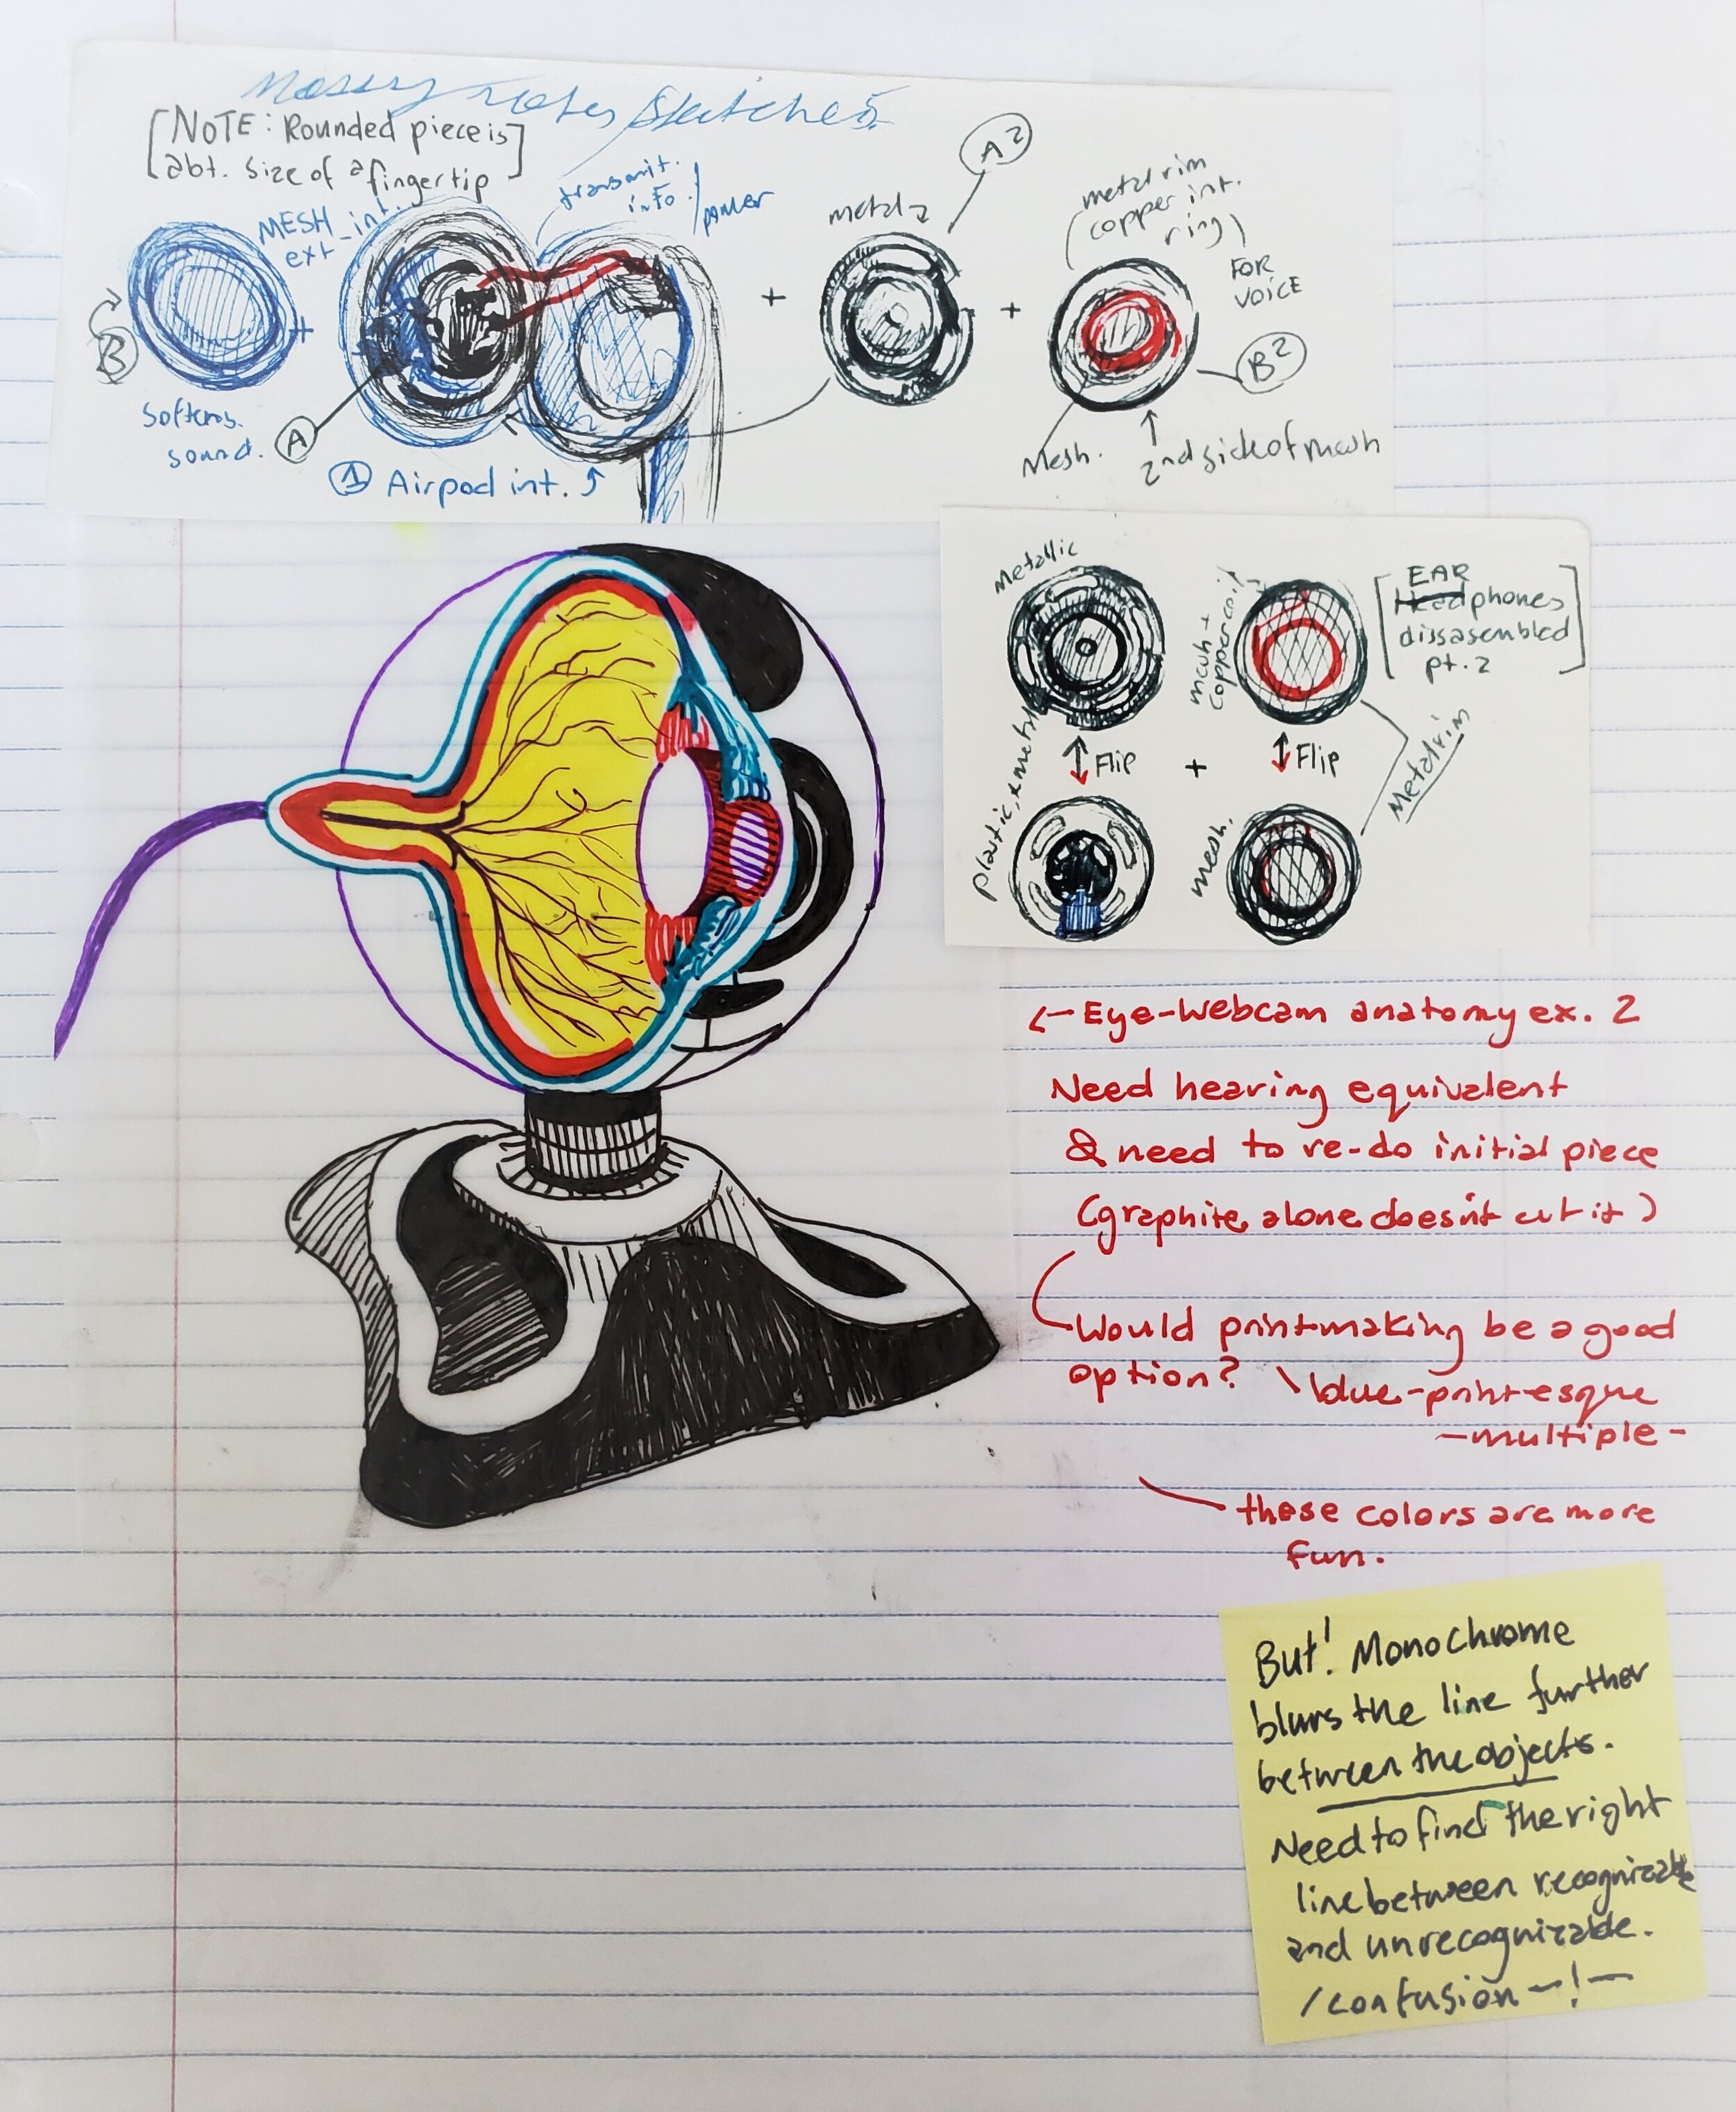 Messy notes/sketches
[NOTE: Rounded piece is
abt. size of a fingertip]
MESH
ext_int.
transmit.
info.
/power
metal?
A2
metal rim
(copper int.
ring)
FOR
VOICE
B
+
+
+
B2
Softens
sound.
A
① Airpod int.
Mesh.
2nd side of mesh
Metallic
mesh +
copper coil
[EAR
Headphones
dissasembled
pt. 2]
Flip
+
Flip
plastic, x metal
mesh.
Metal rim
← Eye-Webcam anatomy ex. 2
Need hearing equivalent
& need to re-do initial piece
(graphite alone doesn't cut it)
Would printmaking be a good
option? \blue-print-esque
-multiple-
these colors are more
fun.
But! Monochrome
blurs the line further
between the objects.
Need to find the right
line between recognizable
and unrecognizable.
/confusion -!-